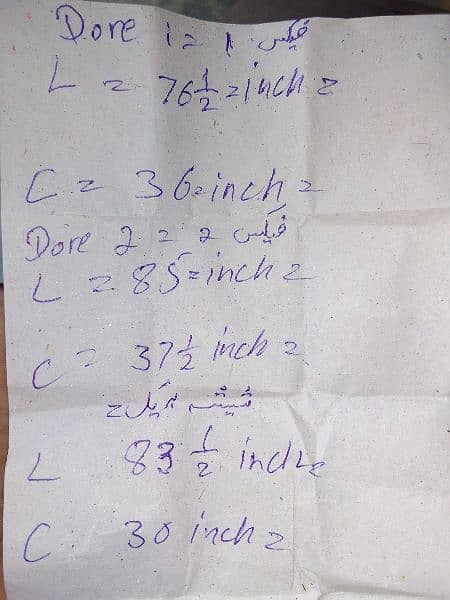 Dore 1 = 1 فیکس
L = 76 1/2 = inch =
C = 36 = inch =
Dore 2 = 2 فیکس
L = 85 = inch =
C = 37 1/2 inch =
شیشہ =
L 83 1/2 inch =
C 30 inch =